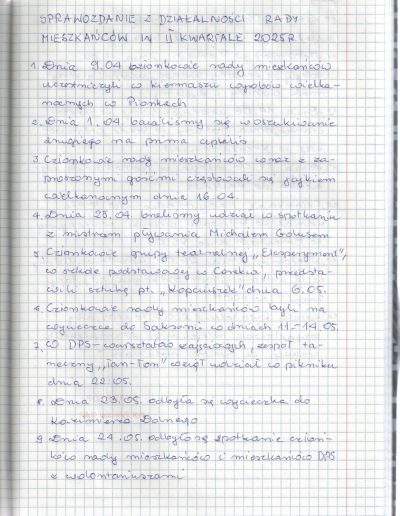 SPRAWOZDANIE Z DZIAŁALNOŚCI RADY
MIESZKAŃCÓW W II KWARTALE 2025R
1. Dnia 9.04 członkowie rady mieszkańców
uczestniczyli w kiermaszu wyrobów wielka-
nocnych w Pionkach
2. Dnia 1.04 bawiliśmy się w oszukiwanie
drugiego na prima aprilis
3. Członkowie rady mieszkańców wraz z za-
proszonymi gośćmi częstowali się jajkiem
wielkanocnym dnia 16.04.
4. Dnia 25.04 braliśmy udział w spotkaniu
z mistrzem pływania Michałem
5. Członkowie grupy teatralnej „Eksperyment",
w szkole podstawowej w przedsta-
wili sztukę pt. „Kopciuszek" dnia 6.05.
6. Członkowie rady mieszkańców byli na
wycieczce do w dniach 11-14.05.
7. W DPS- zespół ta-
neczny „Tan-Ton" wziął udział w pikniku
dnia 22.05.
8. Dnia 23.05. odbyła się wycieczka do
Kazimierza Dolnego
9. Dnia 24.05. odbyło się spotkanie człon-
ków rady mieszkańców i mieszkańców DPS
z wolontariuszami